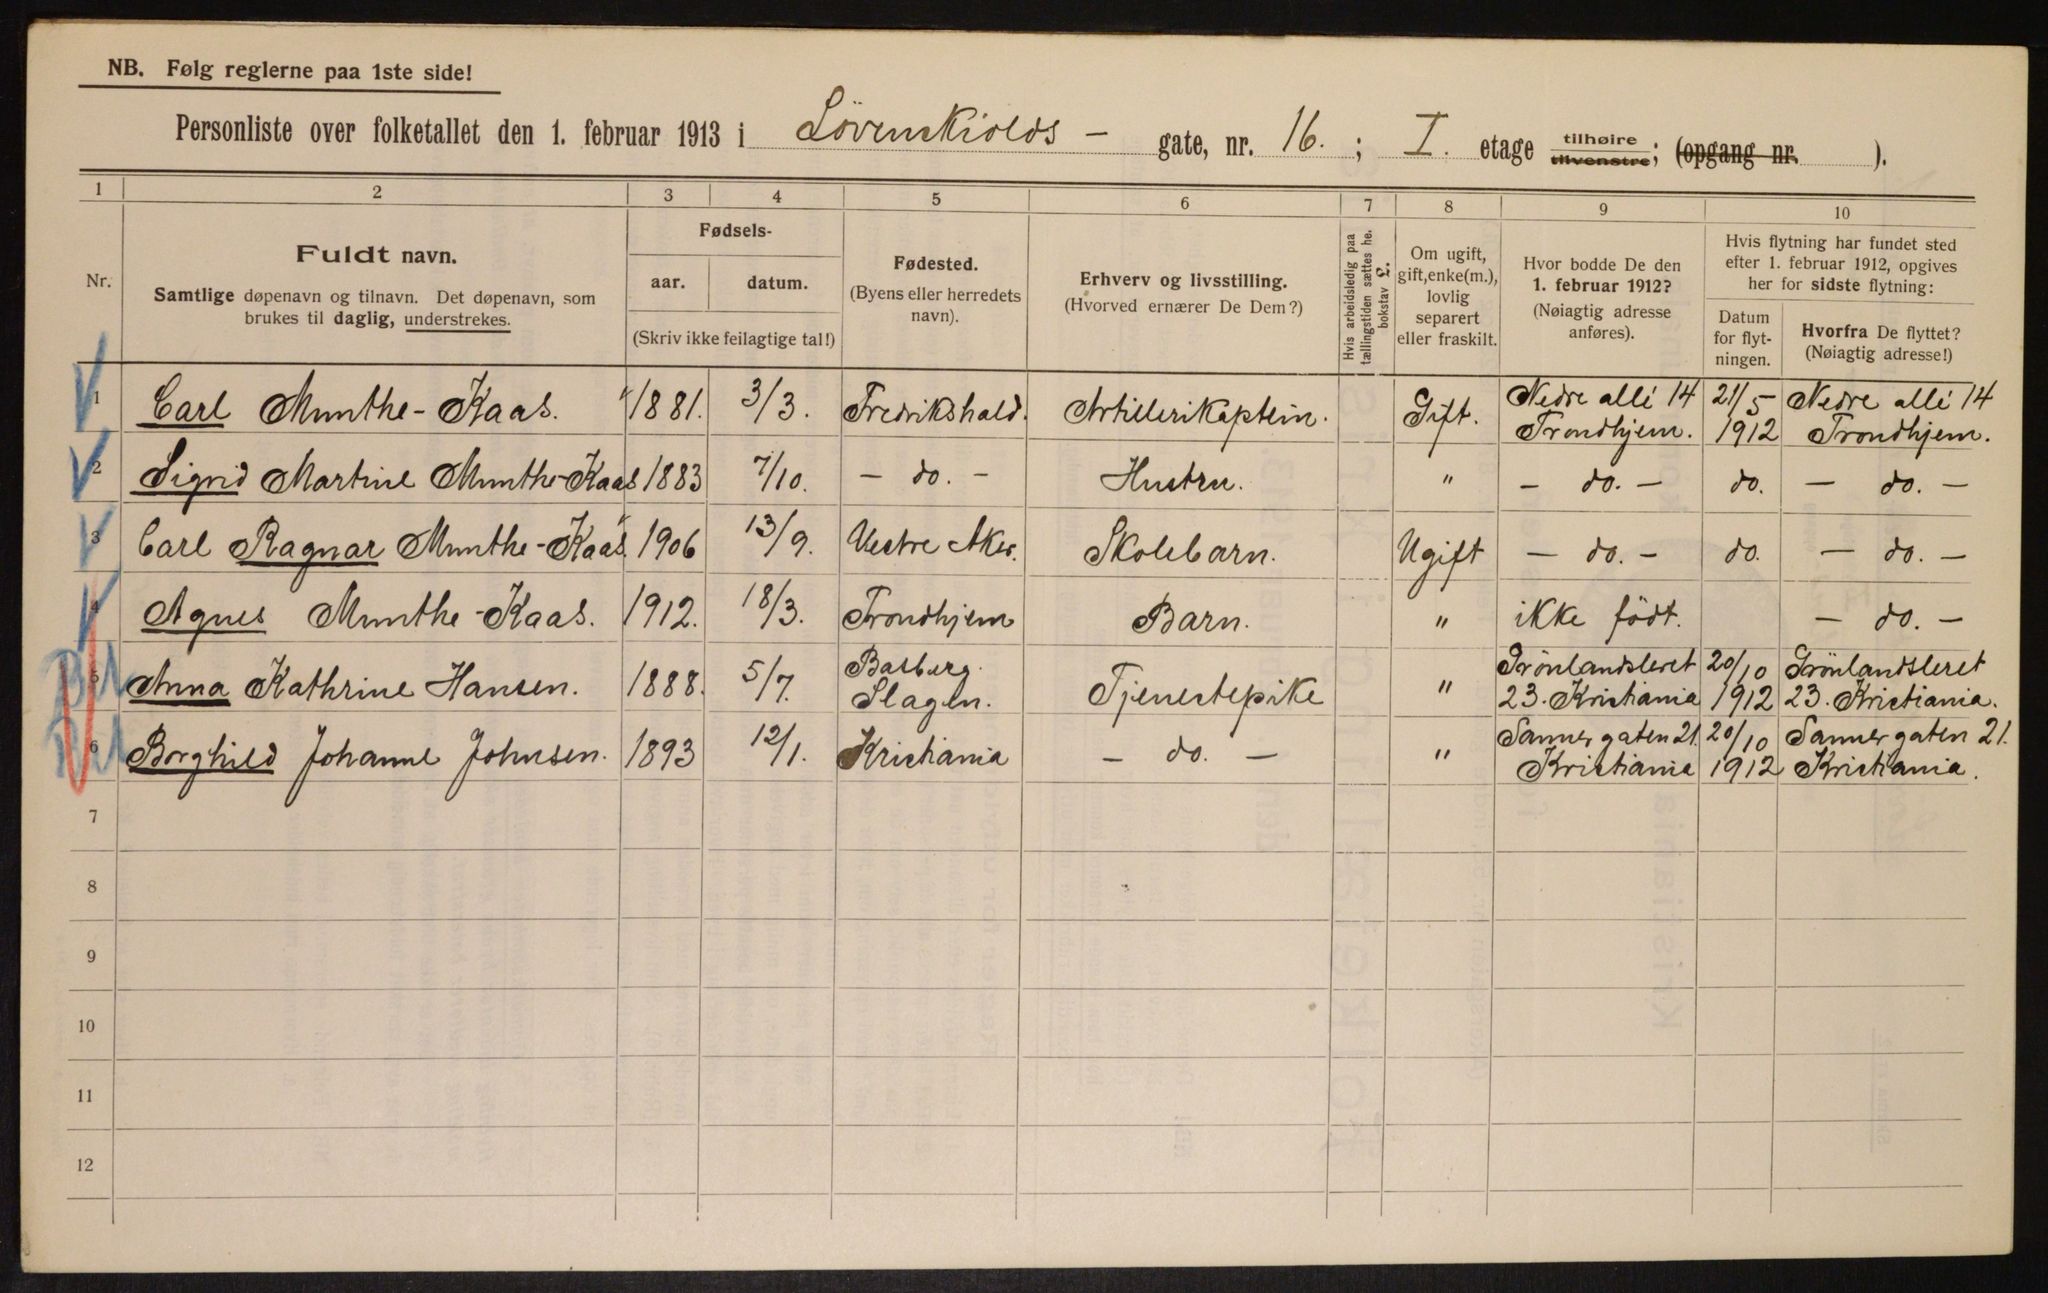 NB. Følg reglerne paa 1ste side!
Personliste over folketallet den 1. februar 1913 i Lövenskiolds - gate, nr. 16. ; I. etage tilhøire tilvenstre; (opgang nr. ).
1 2 3 4 5 6 7 8 9 10
Nr.
Fuldt navn.
Samtlige døpenavn og tilnavn. Det døpenavn, som
brukes til daglig, understrekes.
Fødsels-
aar. datum.
(Skriv ikke feilagtige tal!)
Fødested.
(Byens eller herredets
navn).
Erhverv og livsstilling.
(Hvorved ernærer De Dem?)
Hvis arbeidsledig paa
tællingstiden sættes he.
bokstav £.
Om ugift,
gift, enke(m.),
lovlig
separert
eller fraskilt.
Hvor bodde De den
1. februar 1912?
(Nøiagtig adresse
anføres).
Hvis flytning har fundet sted
efter 1. februar 1912, opgives
her for sidste flytning:
Datum
for flyt-
ningen.
Hvorfra De flyttet?
(Nøiagtig adresse!)
1 Carl Munthe-Kaas. 1881. 3/3. Fredrikshald. Artillerikaptein. Gift. Nedre allé 14 Trondhjem. 21/5 1912 Nedre allé 14 Trondhjem.
2 Sigrid Martine Munthe-Kaas 1883 7/10. - do. - Hustru. " - do. - do. - do. -
3 Carl Ragnar Munthe-Kaas 1906 13/9. Vestre Aker. Skolebarn. Ugift - do. - do. - do. -
4 Agnes Munthe-Kaas. 1912. 18/3. Trondhjem Barn. " ikke födt. - do. -
5 Anna Kathrine Hansen. 1888. 5/7. Basberg. Slagen. Tjenestepike " Grönlandsleret 23. Kristiania 20/10 1912 Grönlandsleret 23. Kristiania.
6 Borghild Johanne Johnsen. 1893 12/1. Kristiania - do. - " Sannergaten 21. Kristiania 20/10 1912 Sannergaten 21. Kristiania.
7
8
9
10
11
12